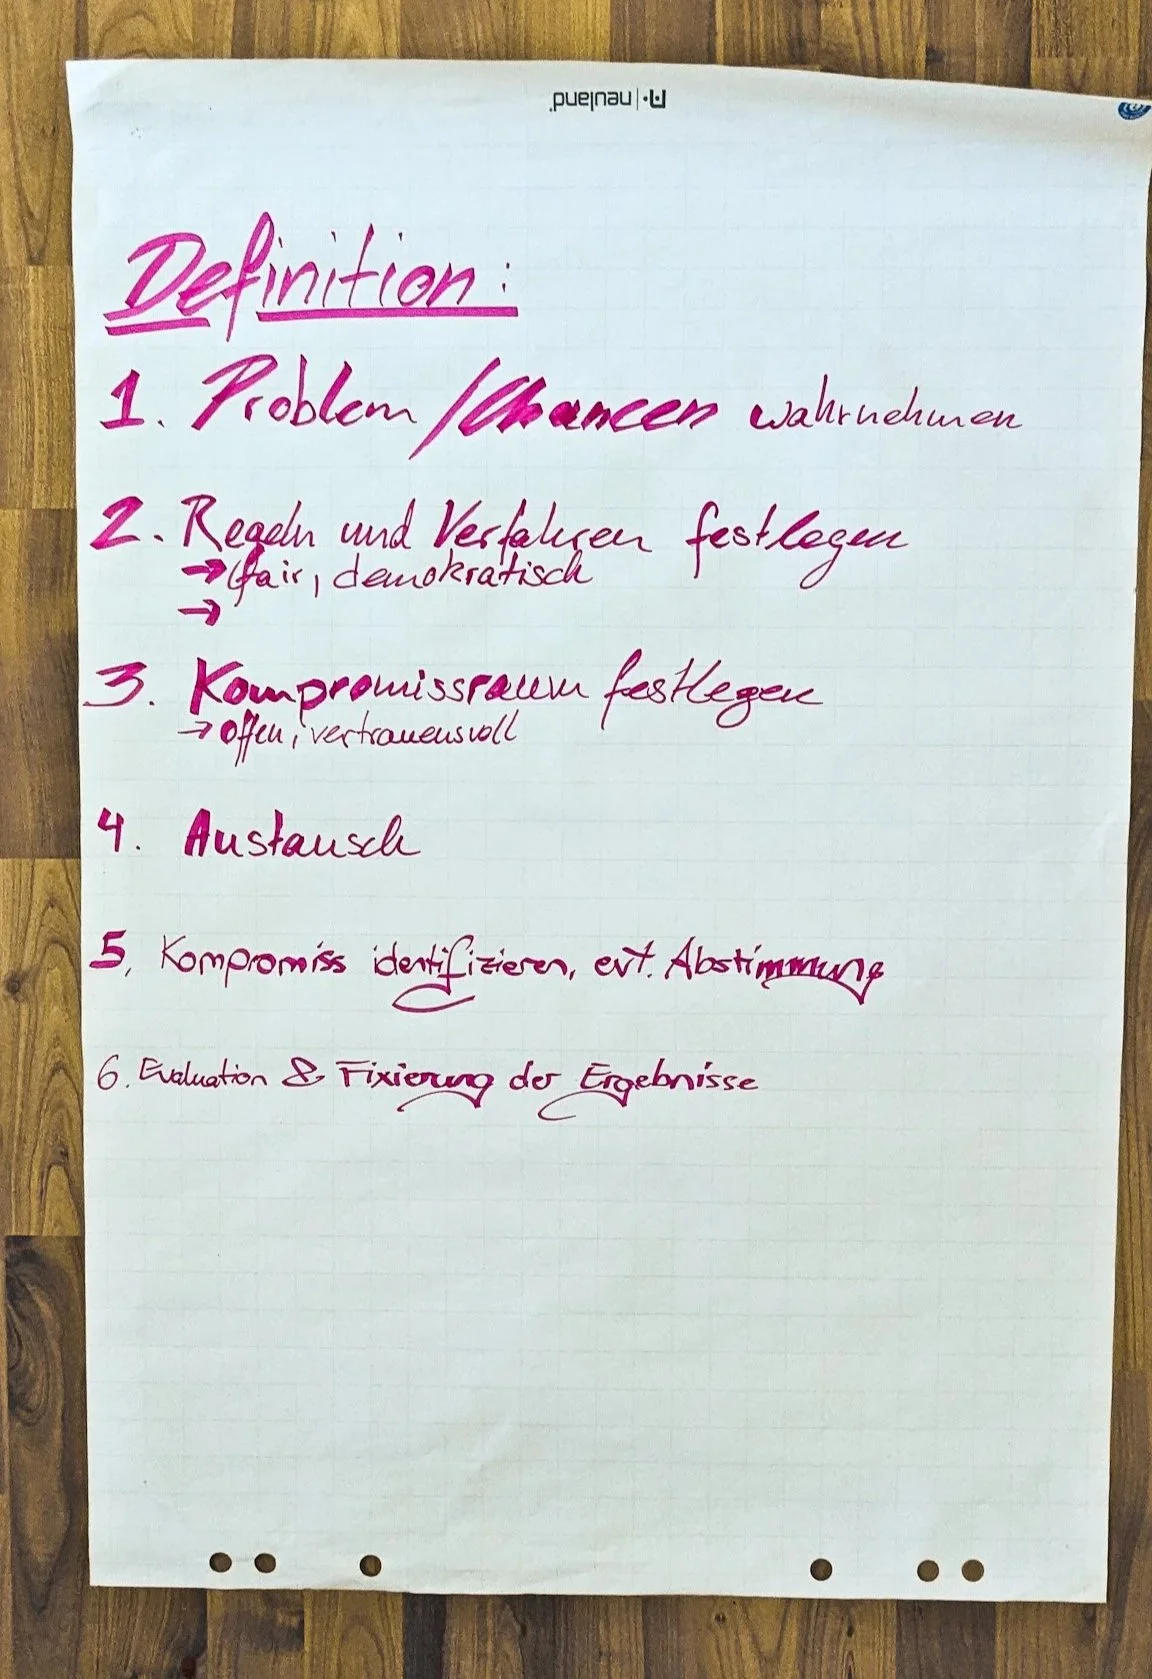 neuland
Definition:
1. Problem/Chancen wahrnehmen
2. Regeln und Verfahren festlegen
→ fair, demokratisch
→
3. Kompromissraum festlegen
→ offen, vertrauensvoll
4. Austausch
5, Kompromiss identifizieren, evt. Abstimmung
6. Evaluation & Fixierung der Ergebnisse